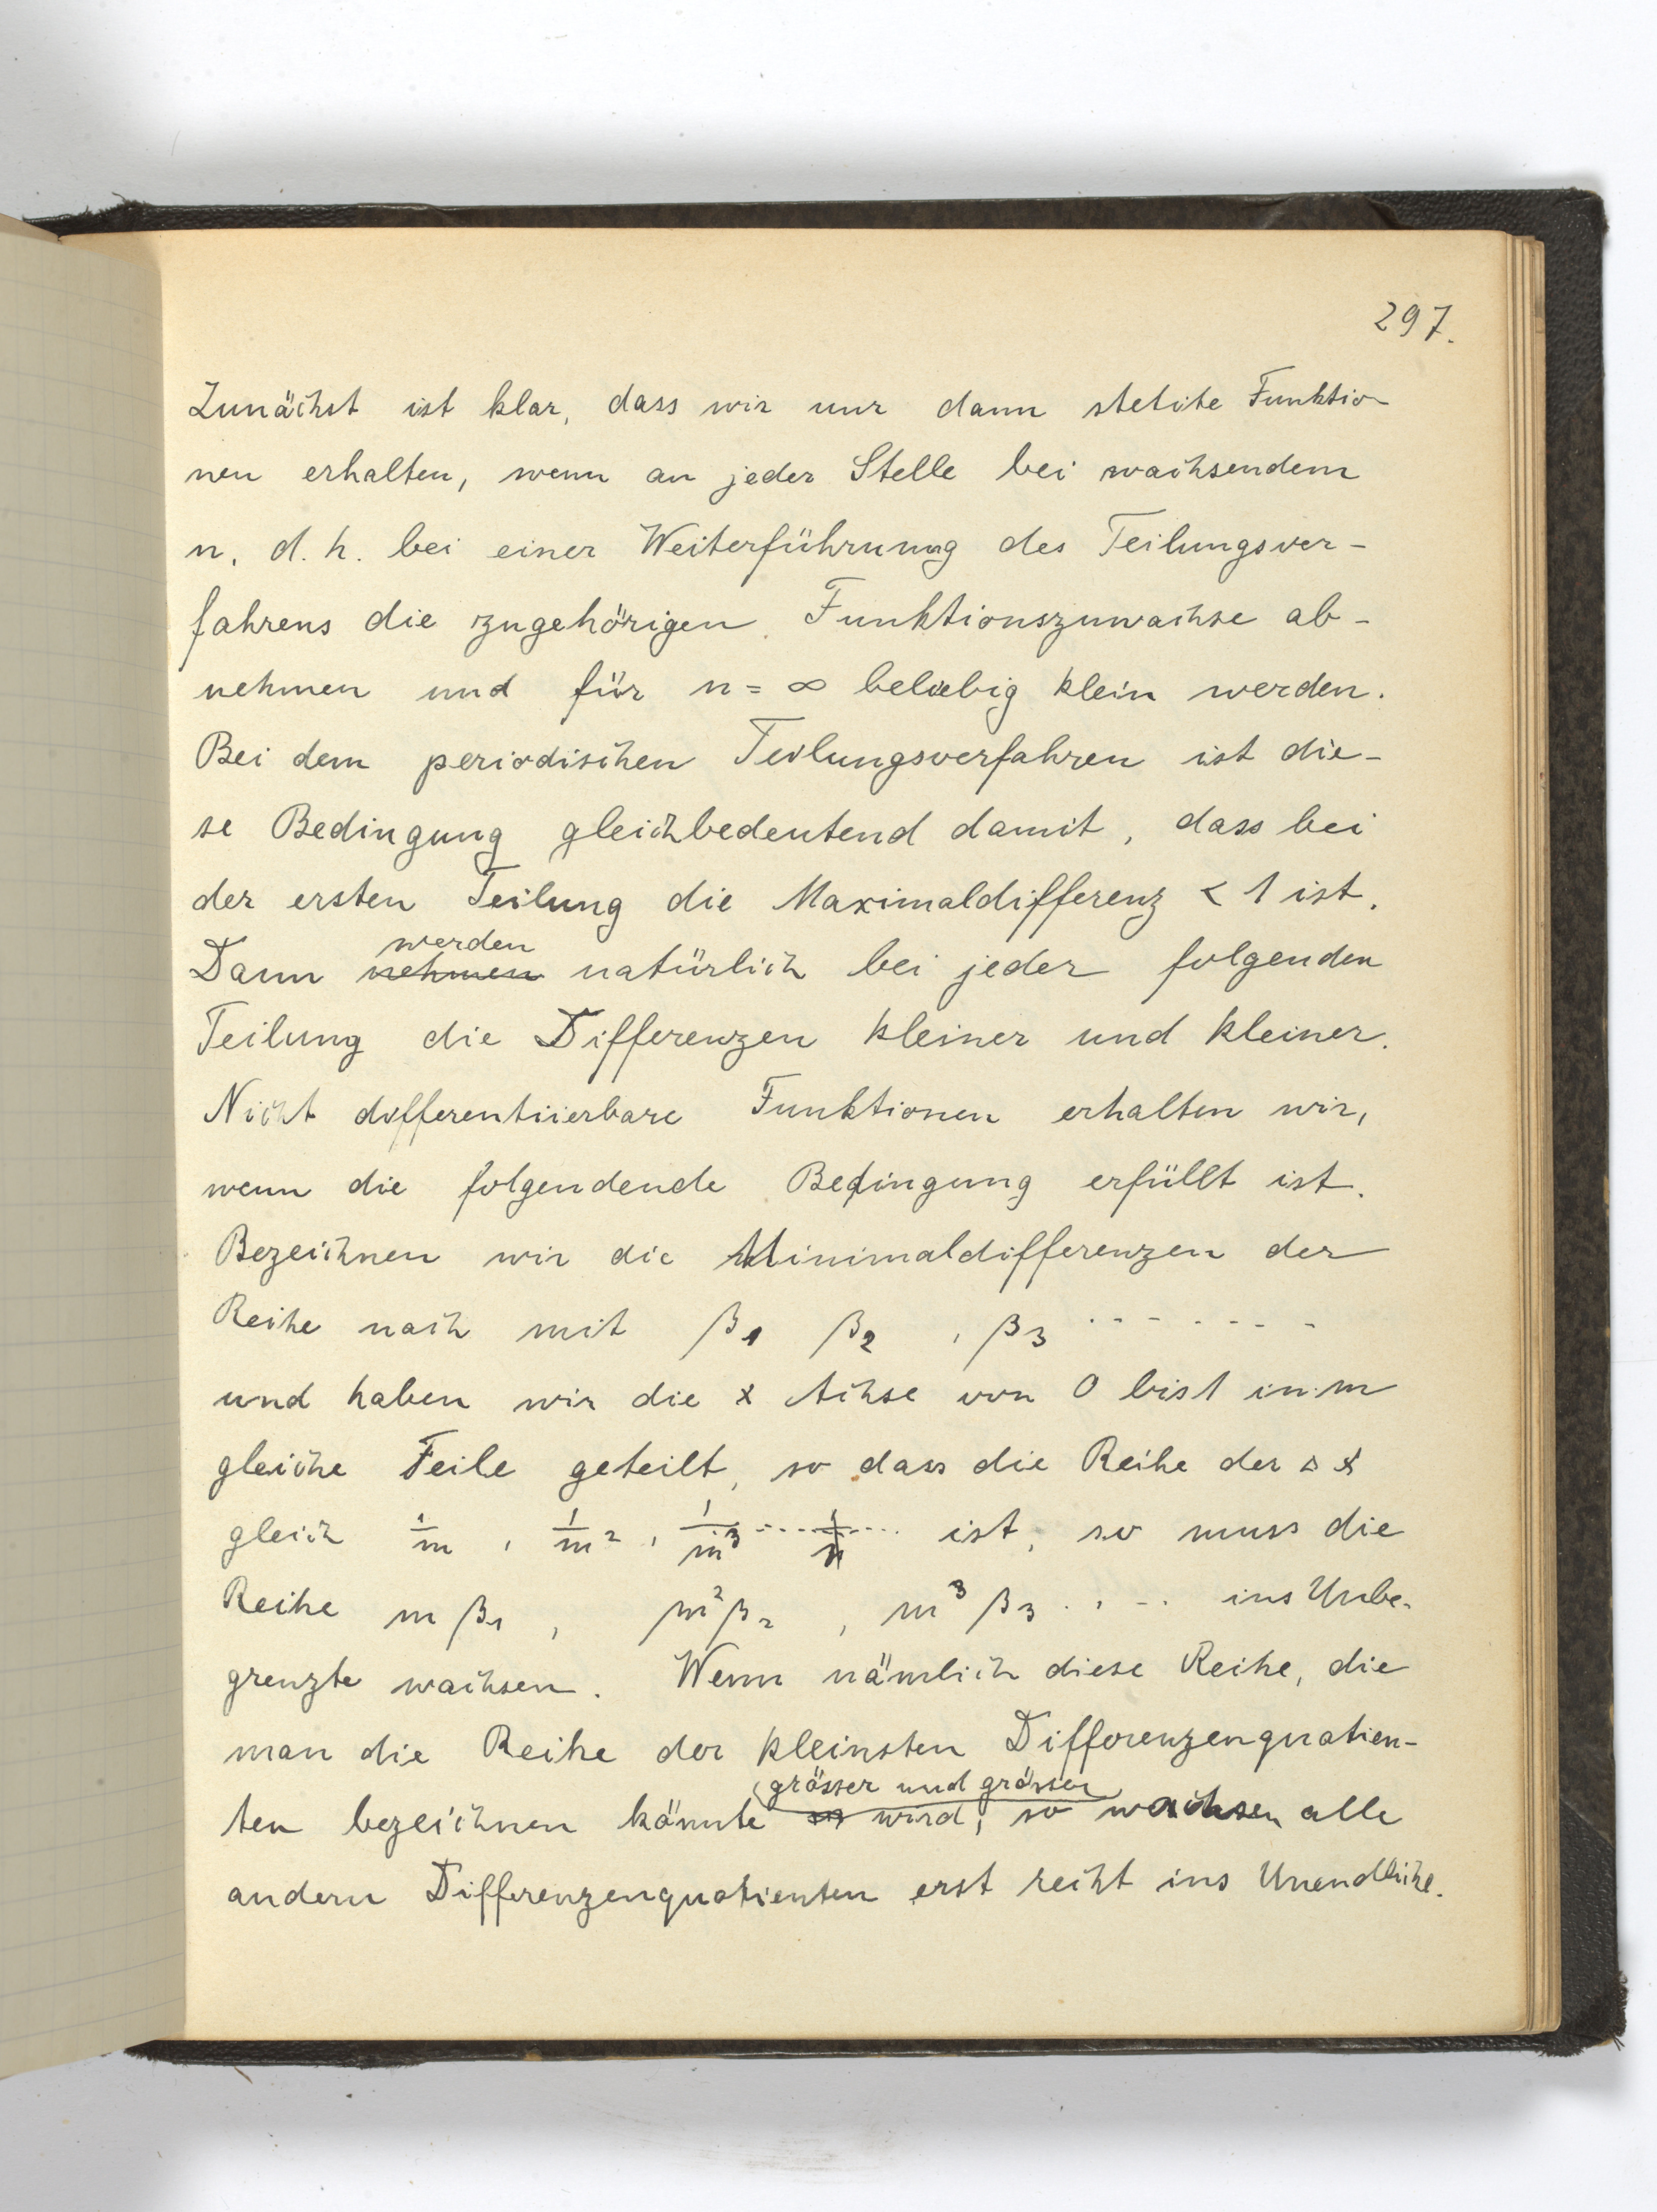 297.
Zunächst ist klar, dass wir nur dann stetite Funktio-
nen erhalten, wenn an jeder Stelle bei wachsendem
n, d. h. bei einer Weiterführunng des Teilungsver-
fahrens die zugehörigen Funktionszuwachse ab-
nehmen und für n = ∞ beliebig klein werden.
Bei dem periodischen Teilungsverfahren ist die-
se Bedingung gleichbedeutend damit, dass bei
der ersten Teilung die Maximaldifferenz < 1 ist.
werden
Dann nehmen natürlich bei jeder folgenden
Teilung die Differenzen kleiner und kleiner.
Nicht differentiierbare Funktionen erhalten wir,
wenn die folgendende Bedingung erfüllt ist.
Bezeichnen wir die Minimaldifferenzen der
Reihe nach mit β1 β2 , β3 ........
und haben wir die x Achse von 0 bis 1 in m
gleiche Teile geteilt, so dass die Reihe der Δ x
gleich 1/m , 1/m², 1/m³ .... 1/n ... ist, so muss die
Reihe m β1 , m²β2 , m³ β3 .... ins Unbe-
grenzte wachsen. Wenn nämlich diese Reihe, die
man die Reihe der kleinsten Differenzenquotien-
grösser und grösser
ten bezeichnen könnte wird, so wachsen alle
andern Differenzenquotienten erst recht ins Unendliche.